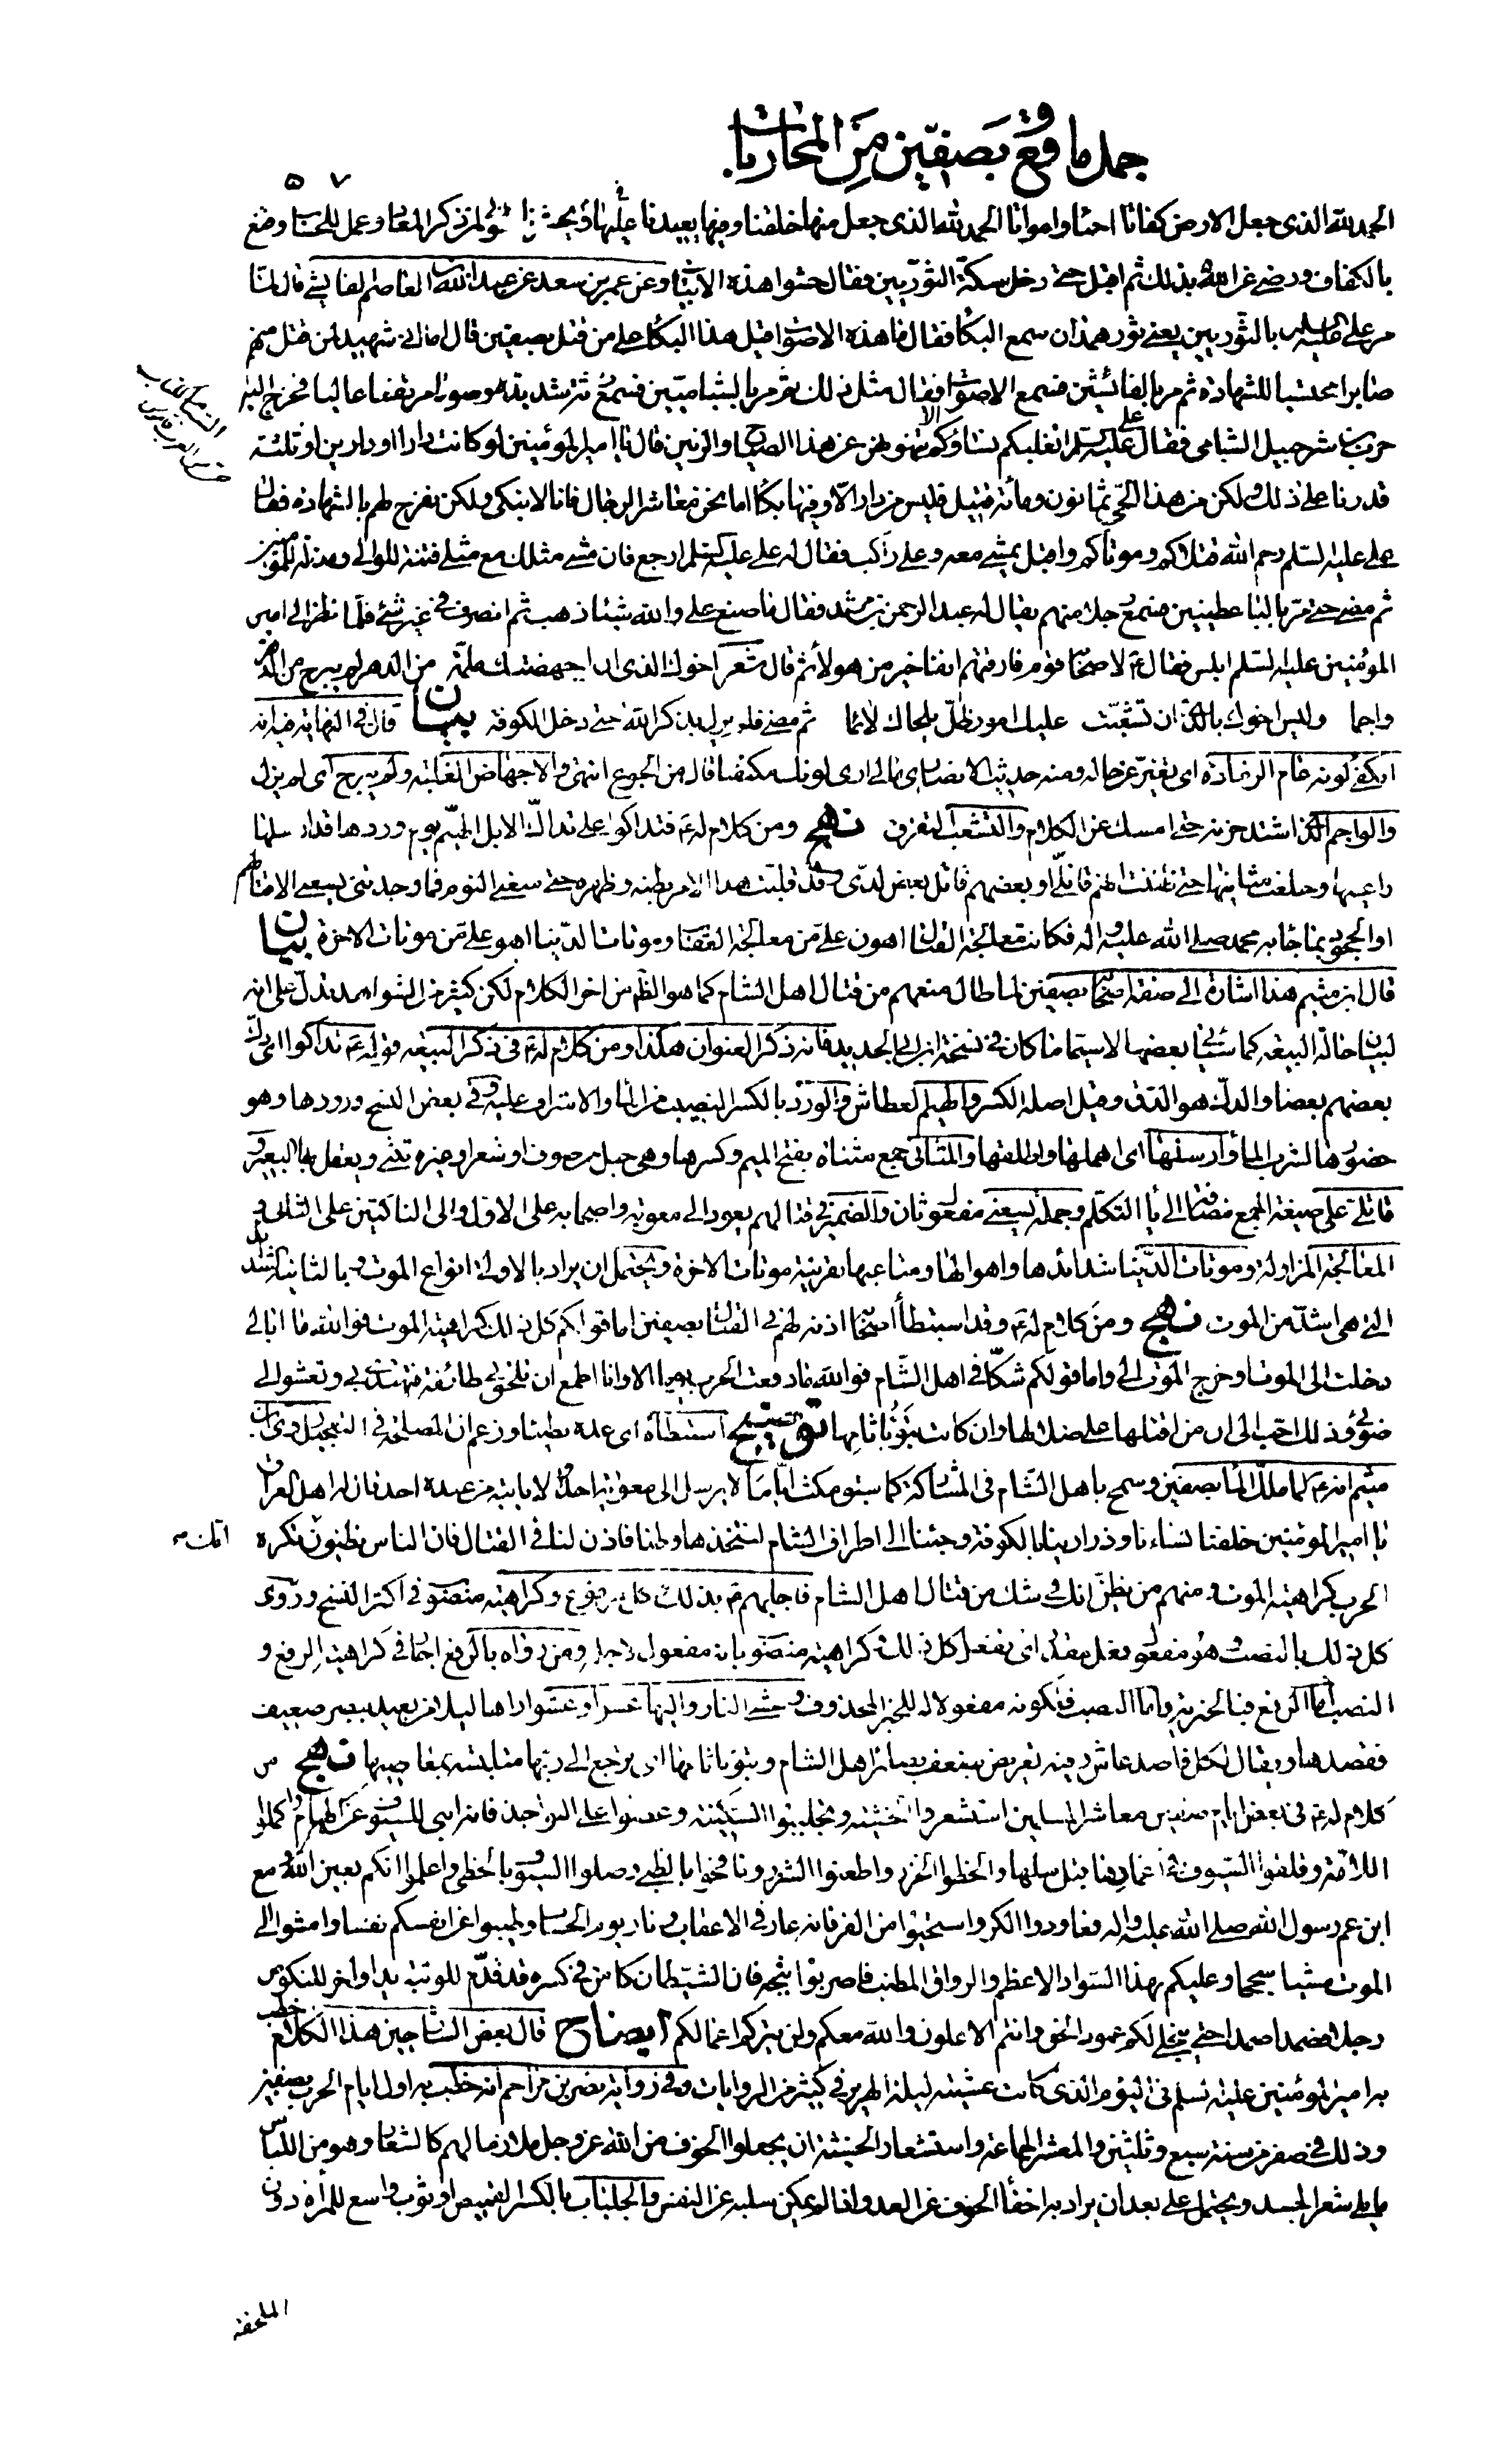 جمل ما وقع بصفين من المحاربات
٥٠٧
الحمد لله الذي جعل الارض كفاتا احياء وامواتا الحمد لله الذي جعل منها خلقنا وفيها يعيدنا وعليها يحشرنا طوبى لمن ذكر المعاد وعمل للحساب وقنع
بالكفاف ورضي عن الله بذلك ثم اقبل حتى دخل سكة الثوريين فقال خشوا هذه الابيات وعن عمر بن سعد عن عبد الله بن العاصم الفايشي قال لما
مر علي عليه السلم بالثوريين يعني ثور همدان سمع البكاء فقال ما هذه الاصوات قيل هذا البكاء على من قتل بصفين قال اما اني شهيد لمن قتل منهم
صابرا محتسبا للشهادة ثم مر بالفائشيين فسمع الاصوات فقال مثل ذلك ثم مر بالشباميين فسمع رنة شديدة وصوتا مرتفعا عاليا فخرج اليه
حرب بن شرحبيل الشبامي فقال علي عليه السلم ايغلبكم نساؤكم الا تنهونهن عن هذا الصياح والرنين قال يا امير المؤمنين لو كانت دارا او دارين او ثلثة
قدرنا على ذلك ولكن من هذا الحي ثمانون ومائة قتيل فليس من دار الا وفيها بكاء اما نحن معاشر الرجال فانا لا نبكي ولكن نفرح لهم بالشهادة فقال
علي عليه السلم رحم الله قتلاكم وموتاكم واقبل يمشي معه وعلي راكب فقال له علي عليه السلم ارجع فان مشي مثلك مع مثلي فتنة للوالي ومذلة للمؤمنين
ثم مضى حتى مر بالناعطيين فسمع رجلا منهم يقال له عبد الرحمن بن مرثد فقال ما صنع علي والله شيئا ذهب ثم انصرف في غير شئ فلما نظر الى امير
المؤمنين عليه السلم ابلس فقال ع لاصحابه قوم فارقتهم انفا خير من هؤلاء ثم قال شعر اخوك الذي ان اجهضتك ملمة من الدهر لم يبرح من الدهر
واجما وليس اخوك بالذي ان تشعبت عليك امور ظل يلحاك لائما ثم مضى فلم يزل يذكر الله حتى دخل الكوفة بيان قال في النهاية فيه انه
انكفئ لونه عام الرمادة اي تغير عن حاله ومنه حديث الانصاري مالي ارى لونك منكفئا قال من الجوع انتهى والاجهاض الغلبة ولم يبرح اي لم يزل
والواجم الذي اشتد حزنه حتى امسك عن الكلام والتشعب التفرق نهج ومن كلام له ع فتداكوا علي تداك الابل الهيم يوم وردها قد ارسلها
راعيها وخلعت مثانيها حتى ظننت انهم قاتلي او بعضهم قاتل بعض لدي وقد قلبت هذا الامر بطنه وظهره حتى منعني النوم فما وجدتني يسعني الا قتالهم
او الجحود بما جاء به محمد صلى الله عليه واله فكانت معالجة القتال اهون علي من معالجة العقاب وموتات الدنيا اهون علي من موتات الاخرة بيان
قال ابن ميثم هذا اشارة الى صفة اصحابه بصفين لما طال منعهم من قتال اهل الشام كما هو الظ من اخر الكلام لكن كثير من الشواهد تدل على انه
لبيان حالة البيعة كما سيأتي بعضها لا سيما ما كان في نسخة ابن ابي الحديد فانه ذكر العنوان هكذا ومن كلام له ع في ذكر البيعة قوله ع تداكوا اي دك
بعضهم بعضا والدك هو الدق وقيل اصله الكسر والهيم العطاش والورد بالكسر النصيب من الماء والاشراف عليه وفي بعض النسخ ورودها وهو
حضورها لشرب الماء وارسلها اي اهملها واطلقها والمثاني جمع مثناة بفتح الميم وكسرها وهي حبل من صوف او شعر او غيره يثنى ويعقل بها البعير و
قاتلي على صيغة الجمع مضافا الى ياء المتكلم وجملة يسعني مفعول ثان والضمير في قتالهم يعود الى معوية واصحابه على الاول والى الناكثين على الثاني و
المعالجة المزاولة وموتات الدنيا شدائدها واهوالها ومتاعبها بقرينة موتات الاخرة ويحتمل ان يراد بالاولى انواع الموت وبالثانية الشدائد
التي هي اشد من الموت نهج ومن كلام له ع وقد استبطأ اصحابه اذنه لهم في القتال بصفين اما قولكم اكل ذلك كراهية الموت فوالله ما ابالي
دخلت الى الموت او خرج الموت الي واما قولكم شكا في اهل الشام فوالله ما دفعت الحرب يوما الا وانا اطمع ان تلحق بي طائفة فتهتدي بي وتعشو الى
ضوئي وذلك احب الي من ان اقتلها على ضلالها وان كانت تبوء باثامها توضيح استبطأه اي عده بطيئا وزعم ان المصلحة في التعجيل وروى ابن
ميثم انه ع لما ملك الماء بصفين وسمح باهل الشام في المشاركة كما سبق مكث اياما لا يرسل الى معوية احدا ولا ياتيه من عنده احد فقال له اهل العراق
يا امير المؤمنين خلفنا نساءنا وذرارينا بالكوفة وجئنا الى اطراف الشام لنتخذها وطنا فاذن لنا في القتال فان الناس يظنون انك تكره
الحرب كراهية الموت ومنهم من يظن انك في شك من قتال اهل الشام فاجابهم ع بذلك وكل مرفوع وكراهية منصوب في اكثر النسخ وروى
كل ذلك بالنصب وهو مفعول فعل مقدر اي تفعل كل ذلك وكراهية منصوب بانه مفعول لاجله ومن رواه بالرفع اجاز في كراهية الرفع و
النصب اما الرفع فبالخبرية واما النصب فلكونه مفعولا له للخبر المحذوف وعشى النار واليها عشوا وعشوا راها ليلا من بعيد ببصر ضعيف
فقصدها ويقال لكل قاصد عاش وفيه تعريض بضعف بصائر اهل الشام وتبوء باثامها اي ترجع الى ربها متلبسة بمعاصيها نهج من
كلام له ع في بعض ايام صفين معاشر المسلمين استشعروا الخشية وتجلببوا السكينة وعضوا على النواجذ فانه انبى للسيوف عن الهام واكملوا
اللامة وقلقلوا السيوف في اغمادها قبل سلها والحظوا الخزر واطعنوا الشزر ونافحوا بالظبى وصلوا السيوف بالخطى واعلموا انكم بعين الله ومع
ابن عم رسول الله صلى الله عليه واله فعاودوا الكر واستحيوا من الفر فانه عار في الاعقاب ونار يوم الحساب وطيبوا عن انفسكم نفسا وامشوا الى
الموت مشيا سجحا وعليكم بهذا السواد الاعظم والرواق المطنب فاضربوا ثبجه فان الشيطان كامن في كسره قد قدم للوثبة يدا واخر للنكوص
رجلا فصمدا صمدا حتى ينجلي لكم عمود الحق وانتم الاعلون والله معكم ولن يتركم اعمالكم ايضاح قال بعض الشارحين هذا الكلام خطب
به امير المؤمنين عليه السلم في اليوم الذي كانت عشيته ليلة الهرير في كثير من الروايات وفي رواية نصر بن مزاحم انه خطب به اول ايام الحرب بصفين
وذلك في صفر من سنة سبع وثلثين والمعشر الجماعة واستشعار الخشية ان يجعلوا الخوف من الله عز وجل ملازما لهم كالشعار وهو من اللباس
ما يلي شعر الجسد ويحتمل على بعد ان يراد به اخفاء الخوف عن العدو واذا لم يمكن سلبه عن النفس والجلباب بالكسر القميص او ثوب واسع للمرأة دون
الملحفة